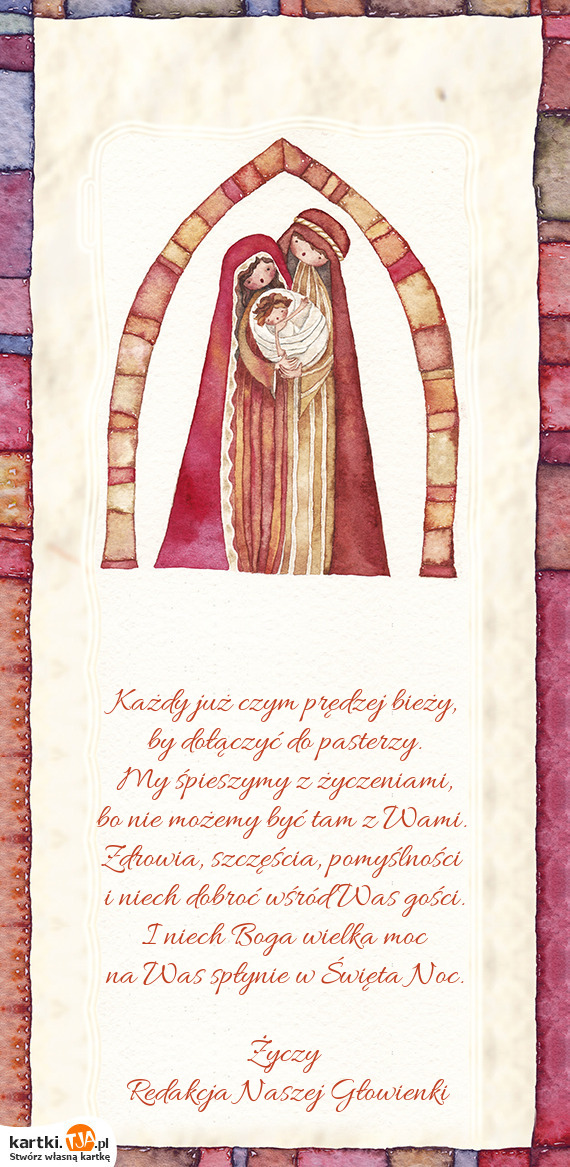 Każdy już czym prędzej bieży,
by dołączyć do pasterzy.
My śpieszymy z życzeniami,
bo nie możemy być tam z Wami.
Zdrowia, szczęścia, pomyślności
i niech dobroć wśród Was gości.
I niech Boga wielka moc
na Was spłynie w Święta Noc.
Życzy
Redakcja Naszej Głowienki
kartki.TJA.pl
Stwórz własną kartkę